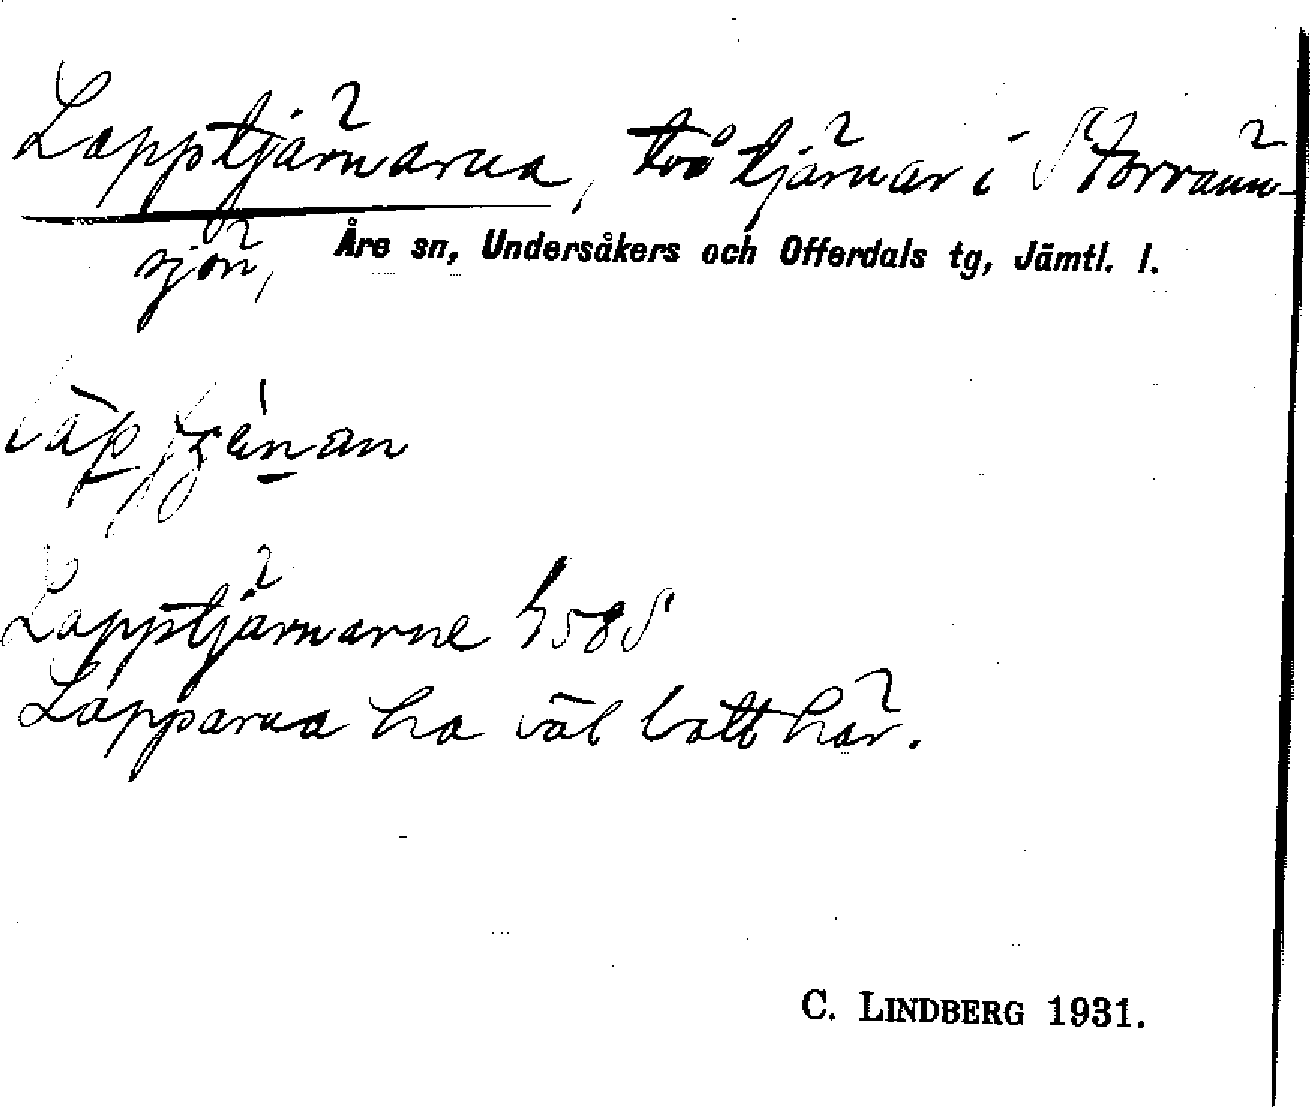 Lapptjärnarna, två tjärnar i Storränn-
sjön, Åre sn, Undersåkers och Offerdals tg, Jämtl. l.
Lapptjärnarne 58 S
Lapparna ha väl bott här.
C. LINDBERG 1931.